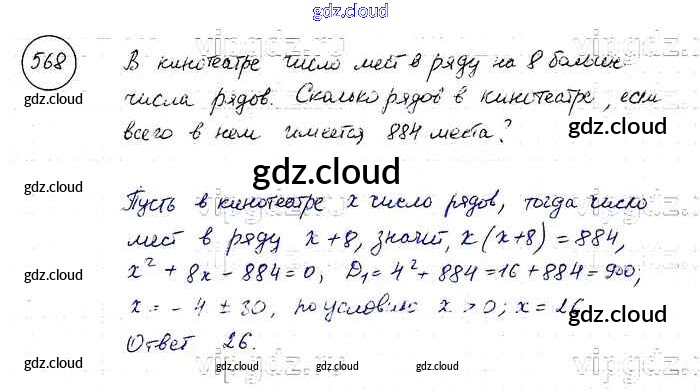 gdz.cloud
568
В кинотеатре число мест в ряду на 8 больше
gdz.cloud gdz.cloud
числа рядов. Сколько рядов в кинотеатре, если
gdz.cloud gdz.cloud
всего в нем имеется 884 места?
gdz.cloud
gdz.cloud
Пусть в кинотеатре x число рядов, тогда число
мест в ряду x+8, значит, x(x+8)=884,
gdz.cloud gdz.cloud
x² + 8x - 884 = 0; D₁ = 4² + 884 = 16 + 884 = 900;
x = - 4 ± 30, по условию x > 0; x = 26
gdz.cloud
Ответ 26.
gdz.cloud gdz.cloud gdz.cloud gdz.cloud
vipgdz